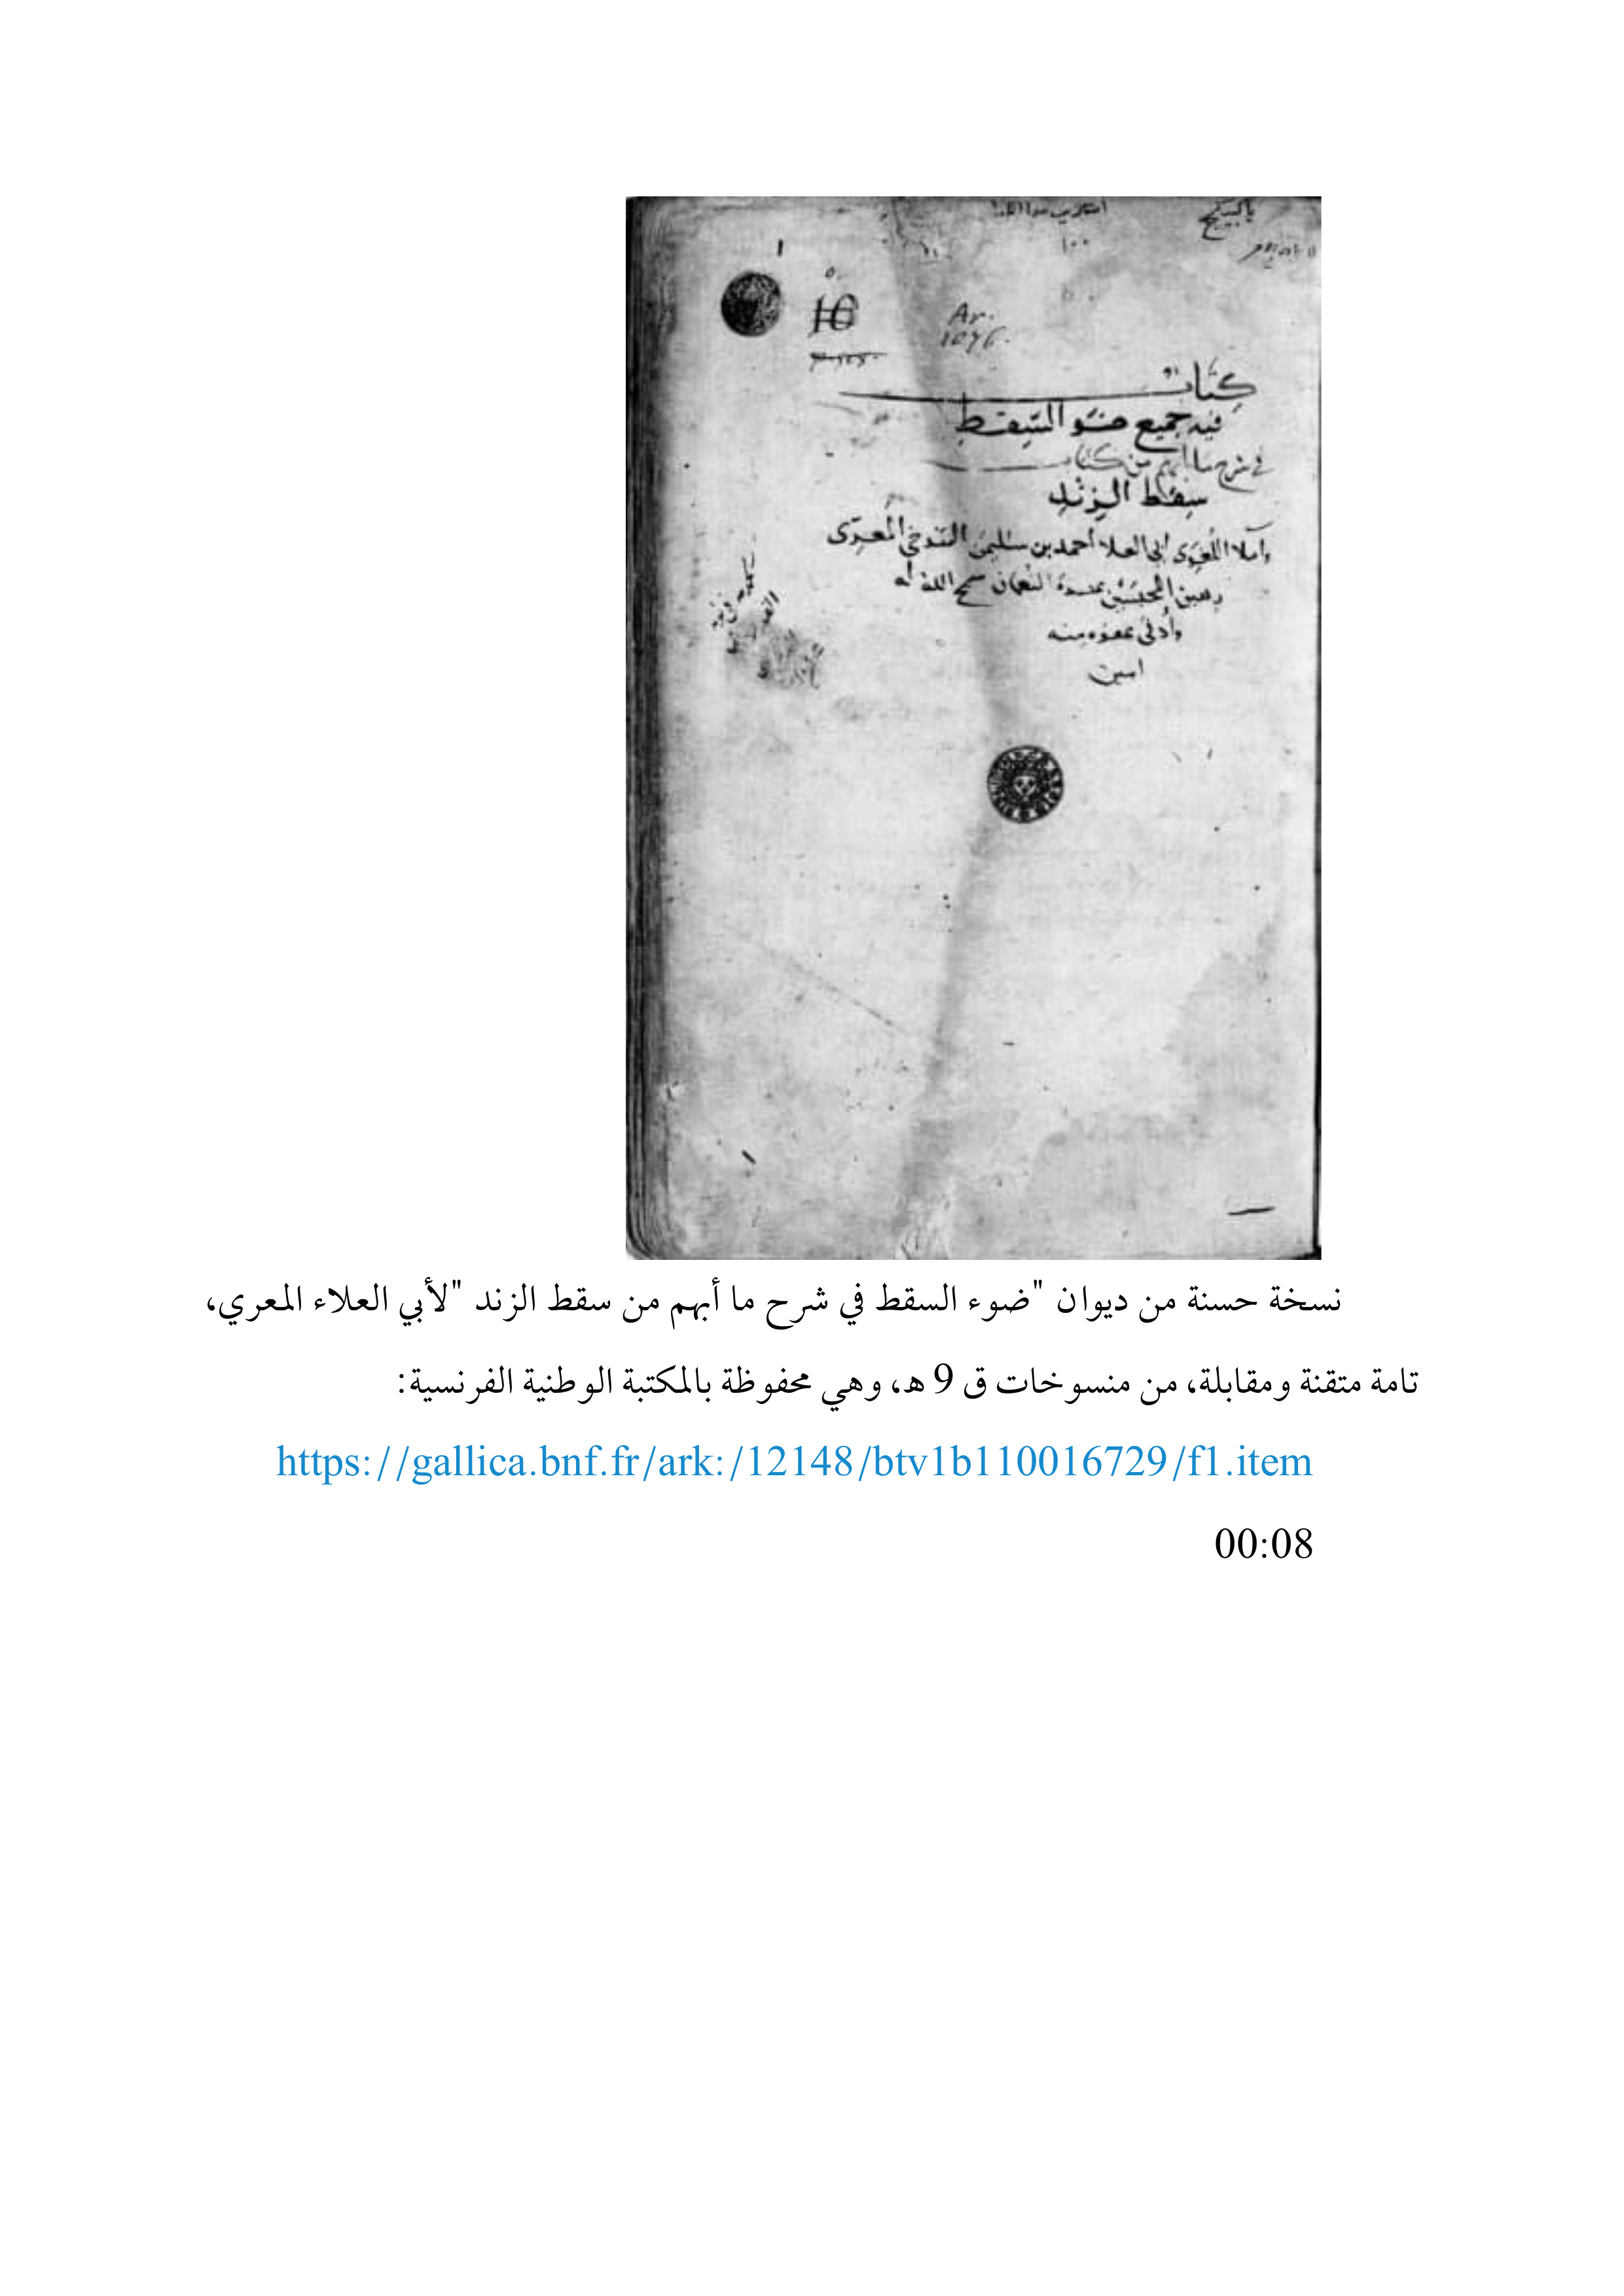 ياكبيكج
١٠٠
١
10
Ar.
1076.
كتاب
فيه جميع ضو السقط
في شرح ما ابهم من كتاب
سقط الزند
املا اللغوى ابى العلا احمد بن سليمن التنوخي المعرى
رهين المحبسين بمعرة النعمان سمح الله له
وأدنى عفوه منه
امين
نسخة حسنة من ديوان "ضوء السقط في شرح ما أبهم من سقط الزند "لأبي العلاء المعري،
تامة متقنة ومقابلة، من منسوخات ق 9 هـ، وهي محفوظة بالمكتبة الوطنية الفرنسية:
https://gallica.bnf.fr/ark:/12148/btv1b110016729/f1.item
00:08